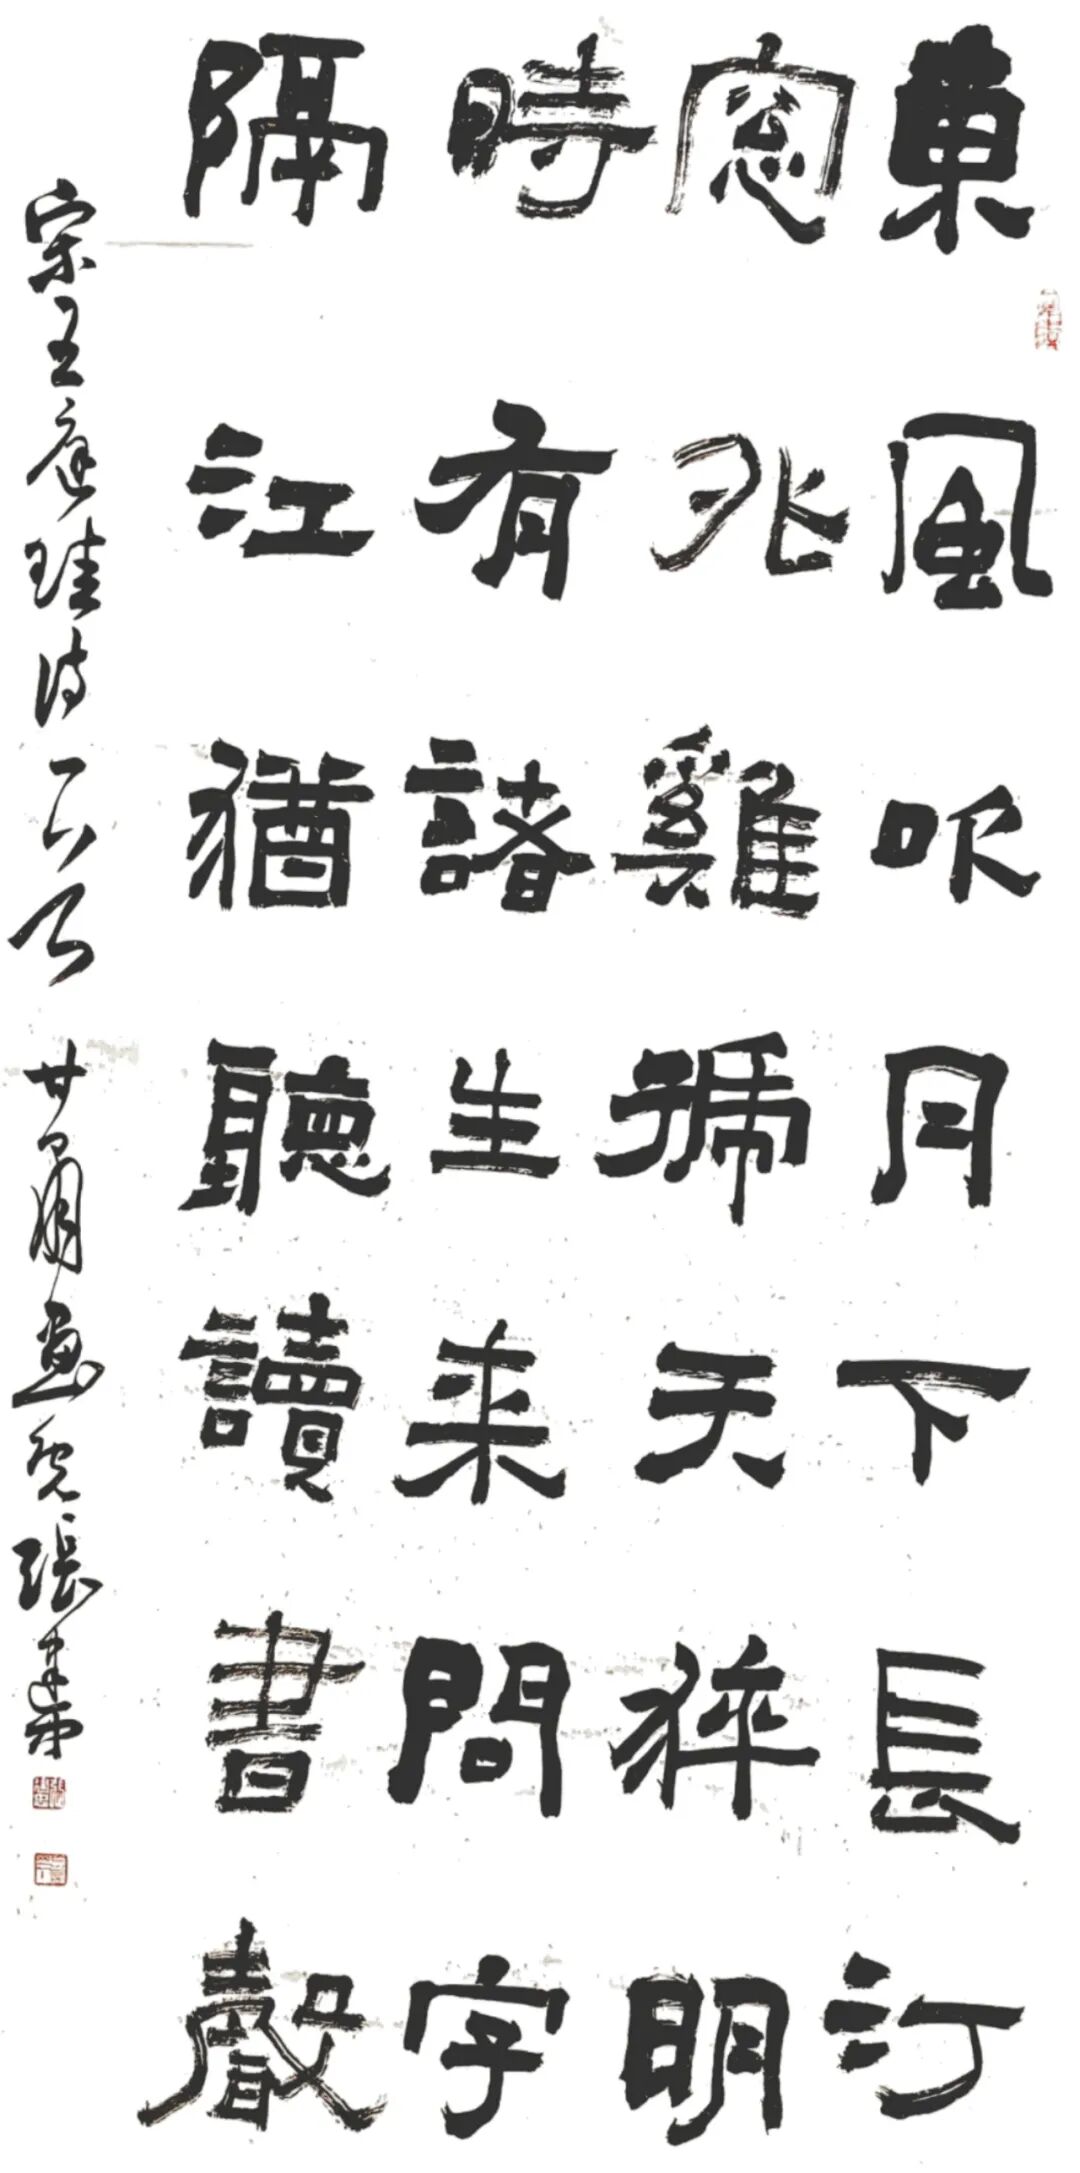 東風吹月下長汀
窓外雞號天猝明
時有諸生来問字
隔江猶聽讀書聲
宋王庭珪詩一首 甘肅畫院張